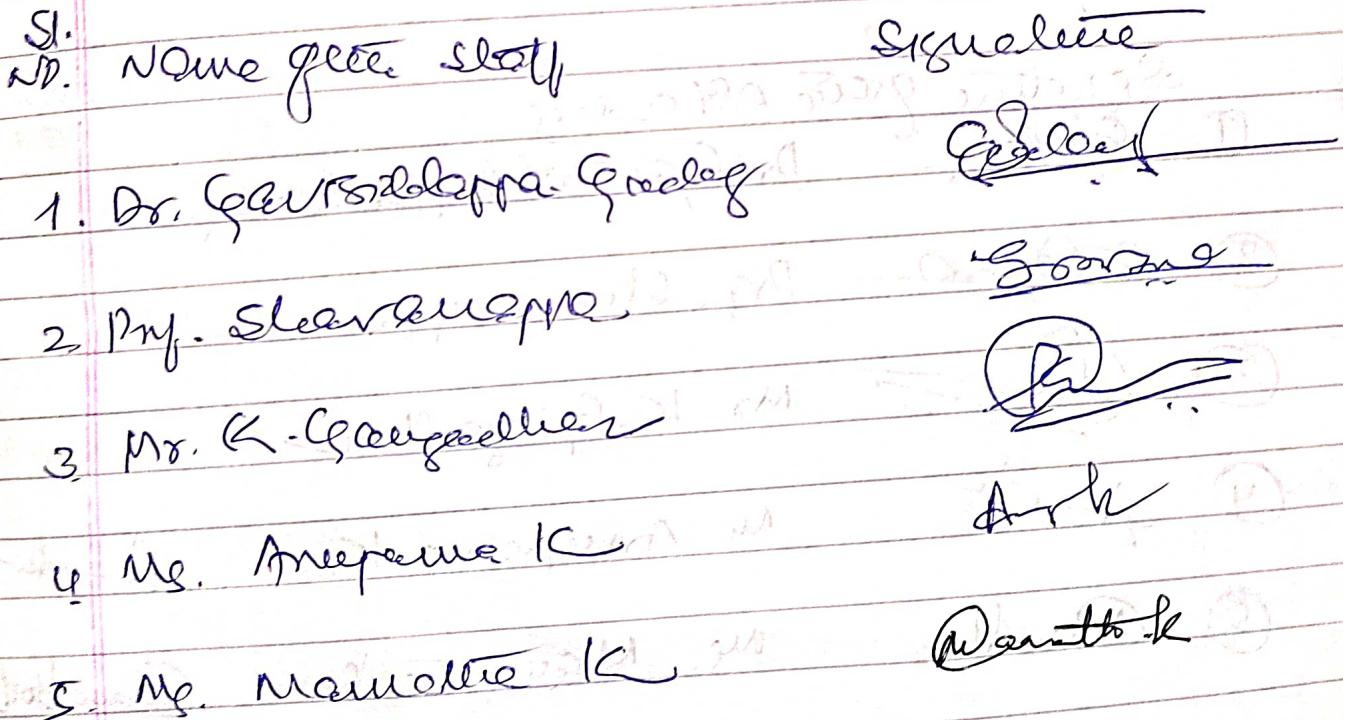 Sl.
No. Name of the Staff Signature
1. Dr. Gavisiddappa. Gadag
2. Prof. Sharanappa
3. Mr. K. Gangadhar
4. Ms. Anupama K
5. Ms. Mamatha K Mamatha K